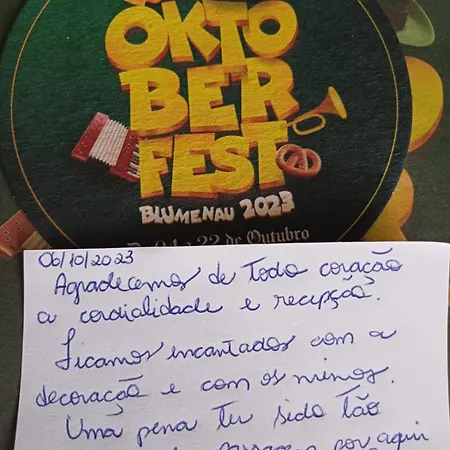 OKTO
BER
FEST
BLUMENAU 2023
22 de Outubro
06/10/2023
Agradecemos de todo coração
a cordialidade e recepção.
Ficamos encantados com a
decoração e com os mimos.
Uma pena ter sido tão
por aqui